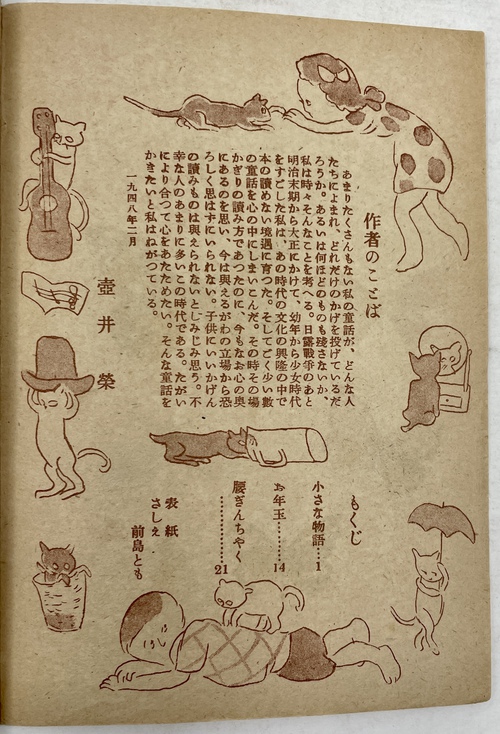 作者のことば
あまりたくさんもない私の童話が、どんな人
たちによまれ、どれだけのかげを投げているだ
ろうか。あるいは何ほどのものも殘さないか、
私は時々そんなことを考へる。日露戰爭のあと
明治末期から大正にかけて、幼年から少女時代
をすごした私は、あの時代の文化の興隆の中で
本の讀めない境遇に育つた。そしてごく少い數
の童話を心の中にしまいこんだ。その時その場
かぎりの讀み方であつたのに、今もなお心の奥
にあるのを思い、今は與えるがわの立場から恐
ろしく思はずにいられない。子供にいいかげん
の讀みものは與えられないとしみじみ思う。不
幸な人のあまりに多いこの時代である。たがい
により合つて心をあたためたい。そんな童話を
かきたいと私はねがつている。
一九四八年二月
壺井 榮
もくじ
小さな物語…1
お年玉………14
腰ぎんちやく………21
表紙
さしえ
前島とも